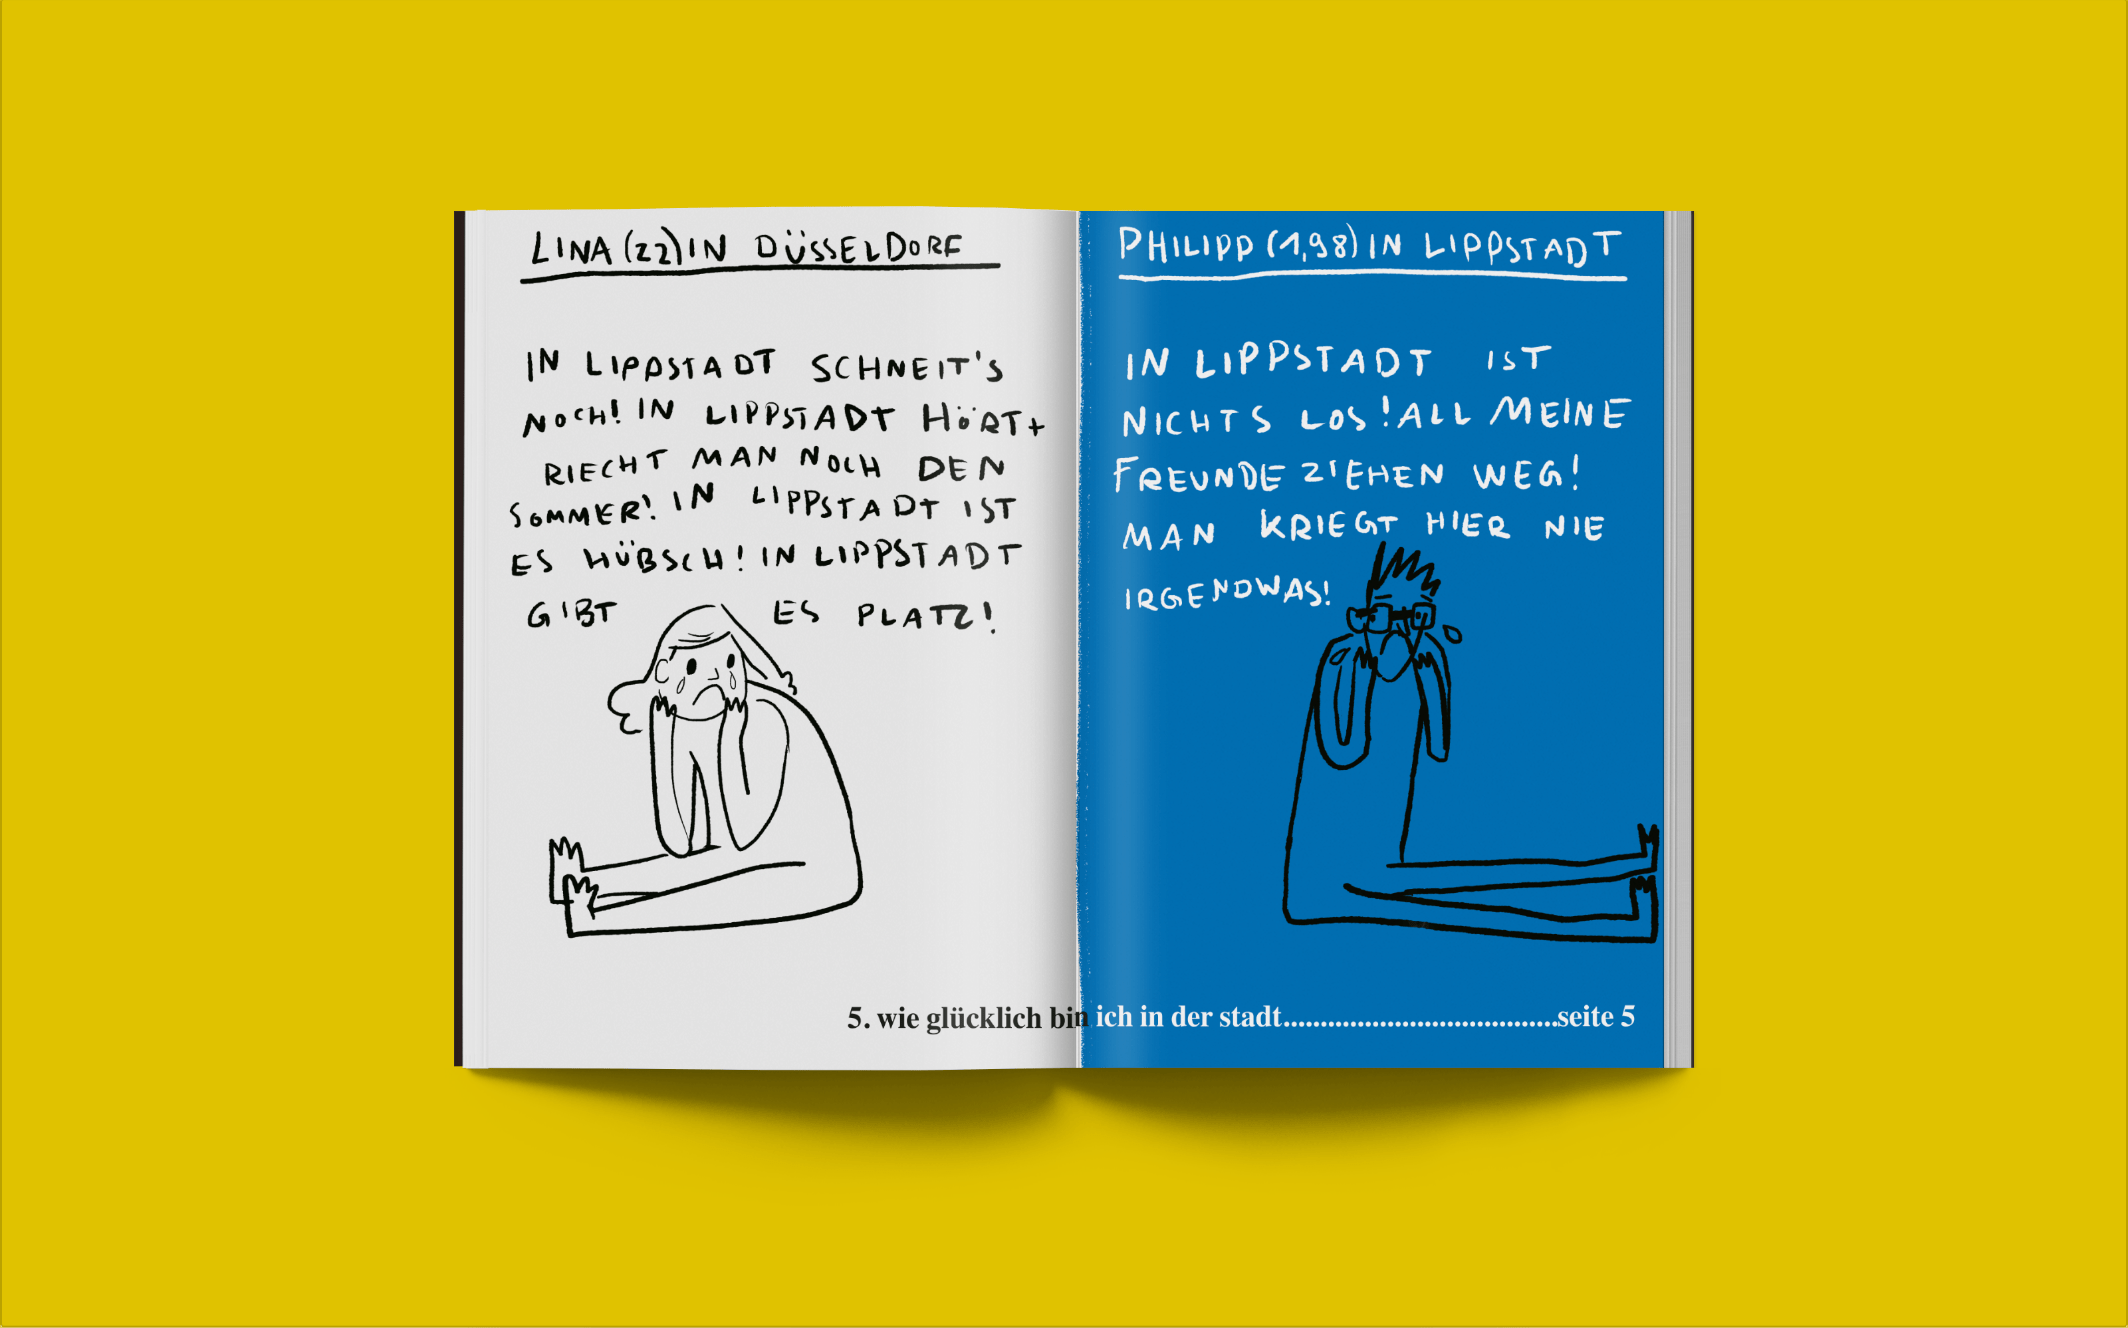 LINA (22) IN DÜSSELDORF
IN LIPPSTADT SCHNEIT'S
NOCH! IN LIPPSTADT HÖRT+
RIECHT MAN NOCH DEN
SOMMER! IN LIPPSTADT IST
ES HÜBSCH! IN LIPPSTADT
GIBT ES PLATZ!
PHILIPP (1,98) IN LIPPSTADT
IN LIPPSTADT IST
NICHTS LOS! ALL MEINE
FREUNDE ZIEHEN WEG!
MAN KRIEGT HIER NIE
IRGENDWAS!
5. wie glücklich bin ich in der stadt.....................................seite 5